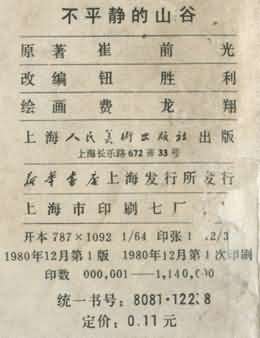 不平静的山谷
原著 崔前光
改编 钮胜利
绘画 费龙翔
上海人民美術出版社出版
上海长乐路672弄33号
新华書店上海发行所发行
上海市印刷七厂
开本 787×1092 1/64 印张 1 2/3
1980年12月第1版 1980年12月第1次印刷
印数 000,001——1,140,000
统一书号: 8081·122 8
定价: 0.11元